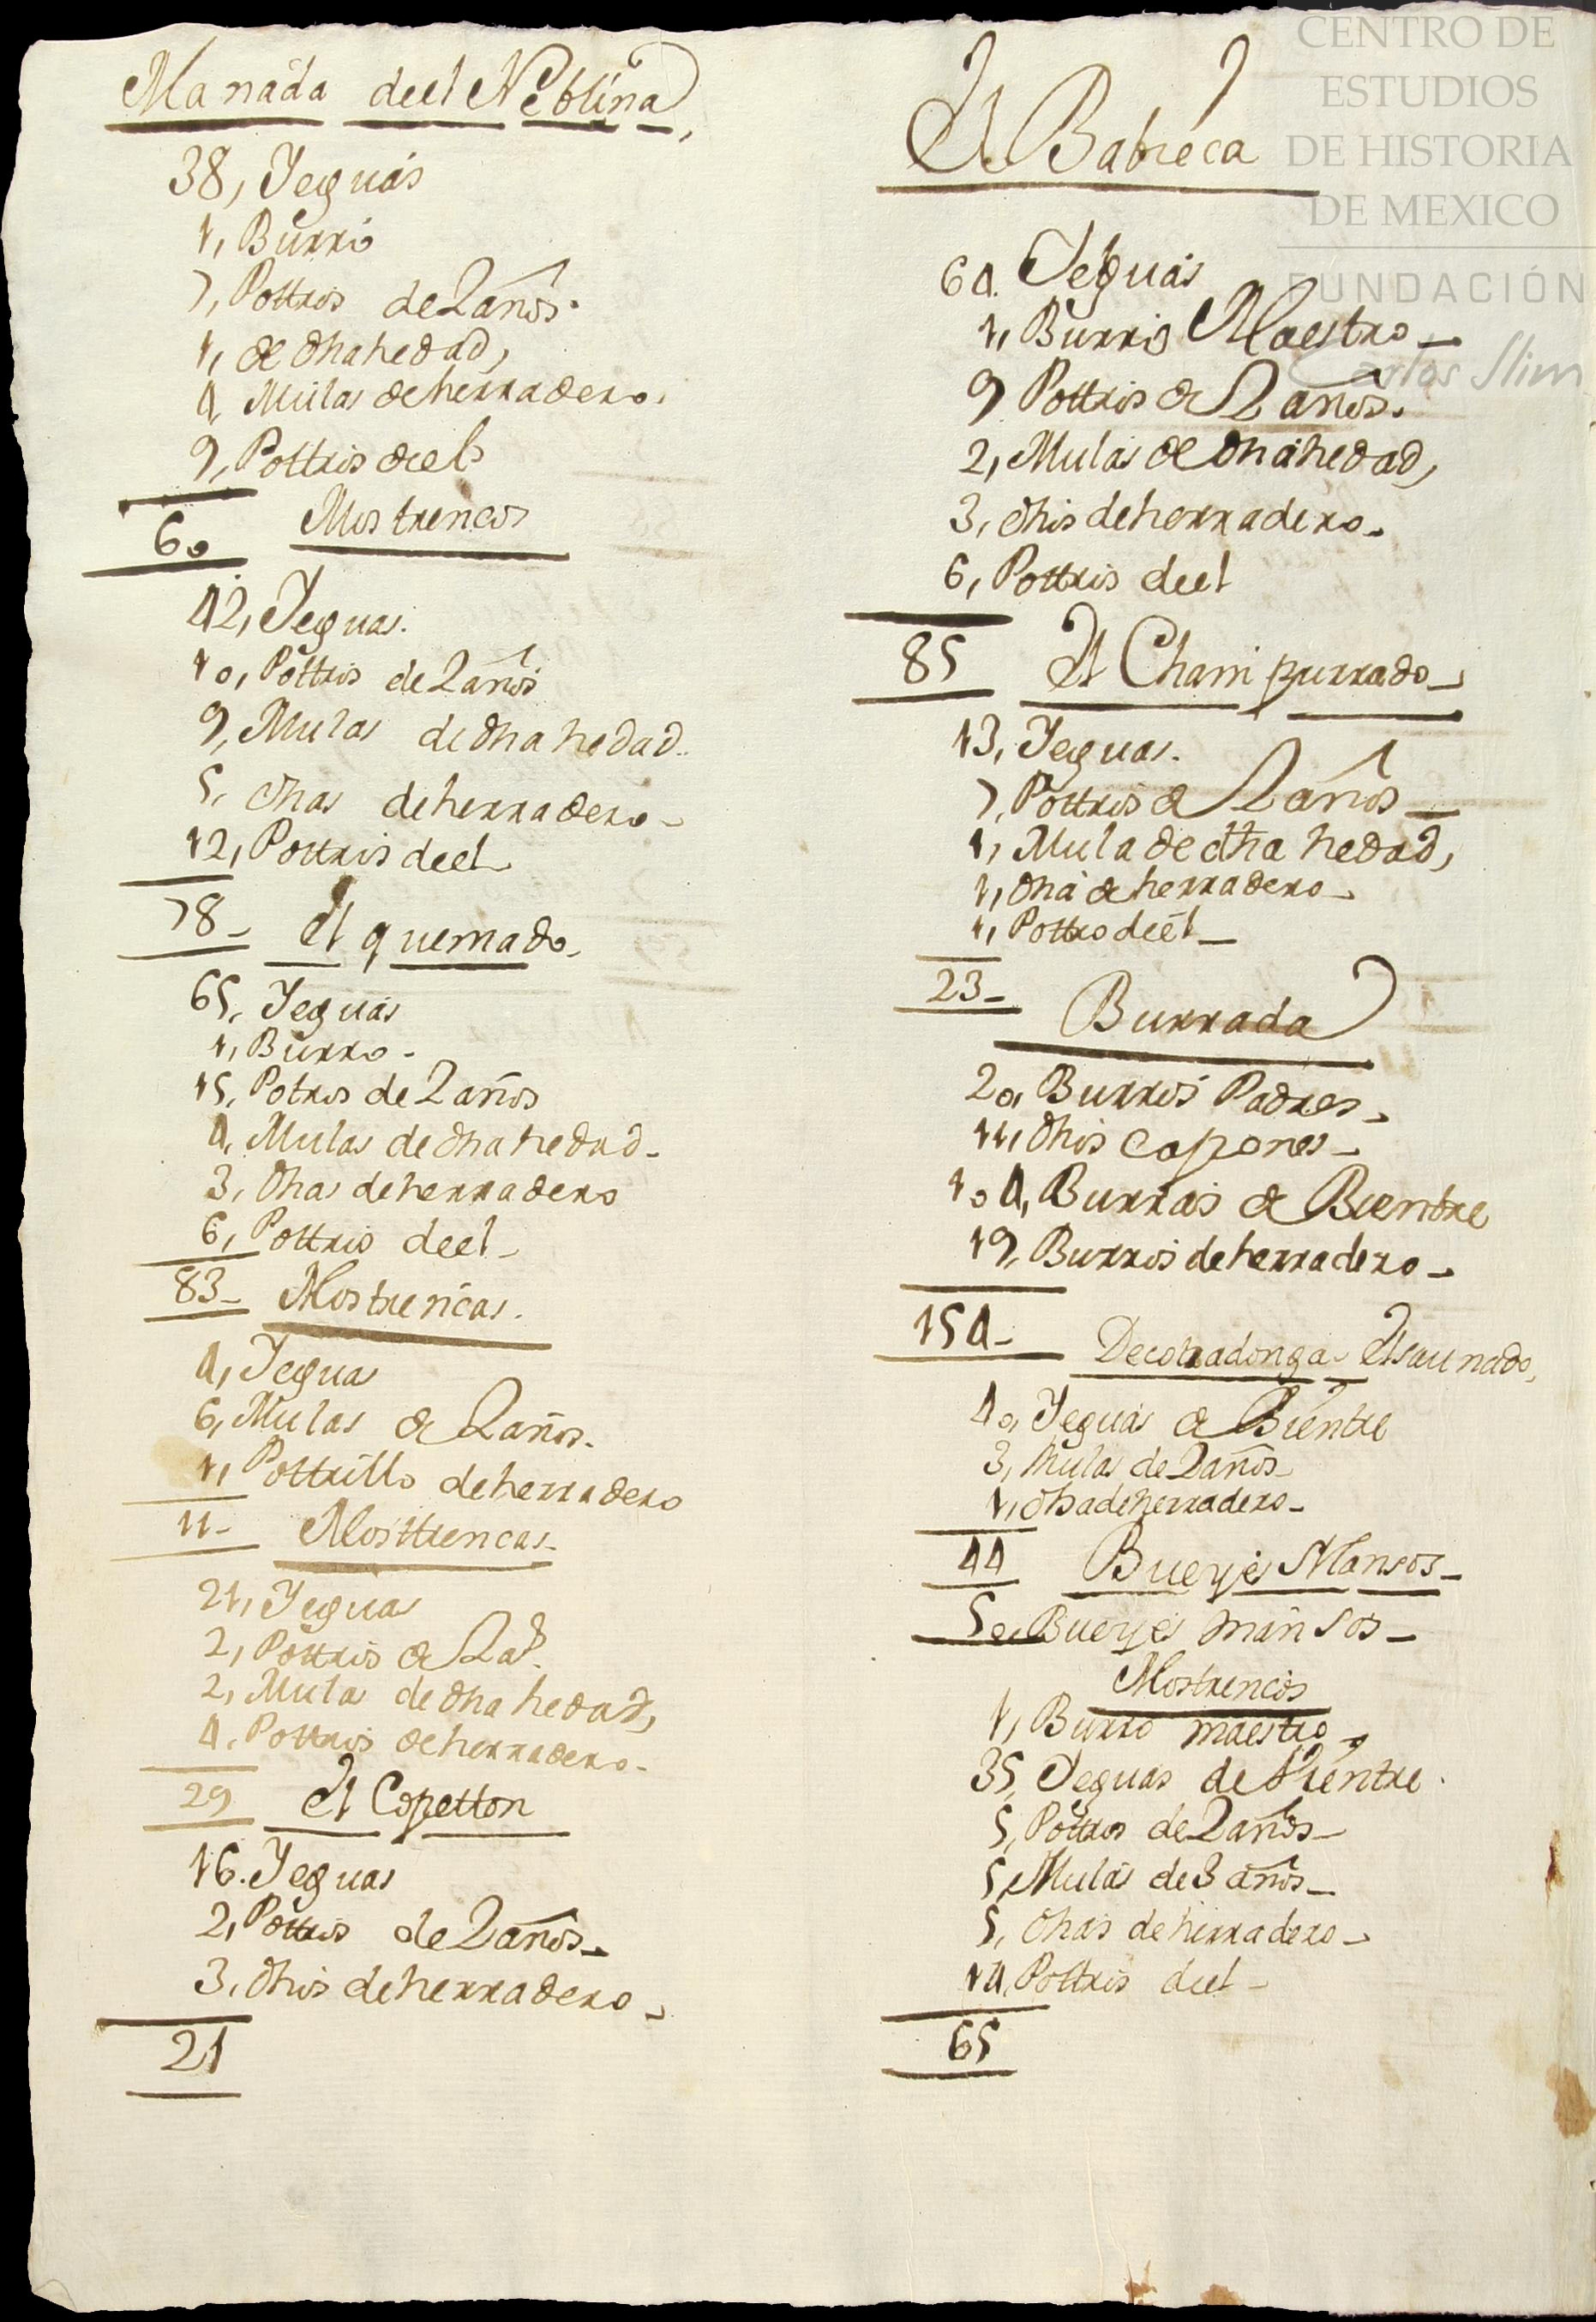 Manada deel Neblina,
38, Yeguas
1, Burro
7, Pottros de 2 años.
1, de dha hedad,
4 Mulas de herradero.
9, Pottros deel
60
Mostrencos
42, Yeguas.
10, Pottros de 2 años
9, Mulas de dha hedad.
5, dhas de herradero-
12, Pottros deel
78-
El quemado-
65, Yeguas
1, Burro-
15, Potros de 2 años
4, Mulas de dha hedad-
3, dhas de herradero
6, Pottros deel-
83-
Mostrencas.
4, Yeguas
6, Mulas de 2 años-
1, Pottrillo de herradero
11-
Mosttrencas-
21, Yeguas
2, Pottros de 2 as.
2, Mulas de dha hedad,
4, Pottros de herradero-
29
El Copetton
16. Yeguas
2, Pottros de 2 años-
3, dhos de herradero-
21
El Babieca
64. Yeguas
1, Burro Maestro-
9 Pottros de 2 años.
2, Mulas de dha hedad,
3, dhos de herradero-
6, Pottros deel
85
El Cham purrado-
13, Yeguas.
7, Pottros de 2 años-
1, Mula de dha hedad,
1, dha de herradero-
1, Pottro deel-
23-
Burrada
20, Burros Padres-
11, dhos capones-
104, Burras de Bientre
19, Burros de herradero-
154-
Decobadonga El saunado,
40, Yeguas de Bientre
3, Mulas de 2 años-
1, dha de herradero-
44
Bueyes Mansos-
50, Bueyes mansos-
Mostrencos
1, Burro maestro-
35, Yeguas de Vientre.
5, Pottros de 2 años-
5, Mulas de 3 años-
5, dhas de herradero-
14, Pottros deel-
65
CENTRO DE
ESTUDIOS
DE HISTORIA
DE MEXICO
FUNDACIÓN
Carlos Slim